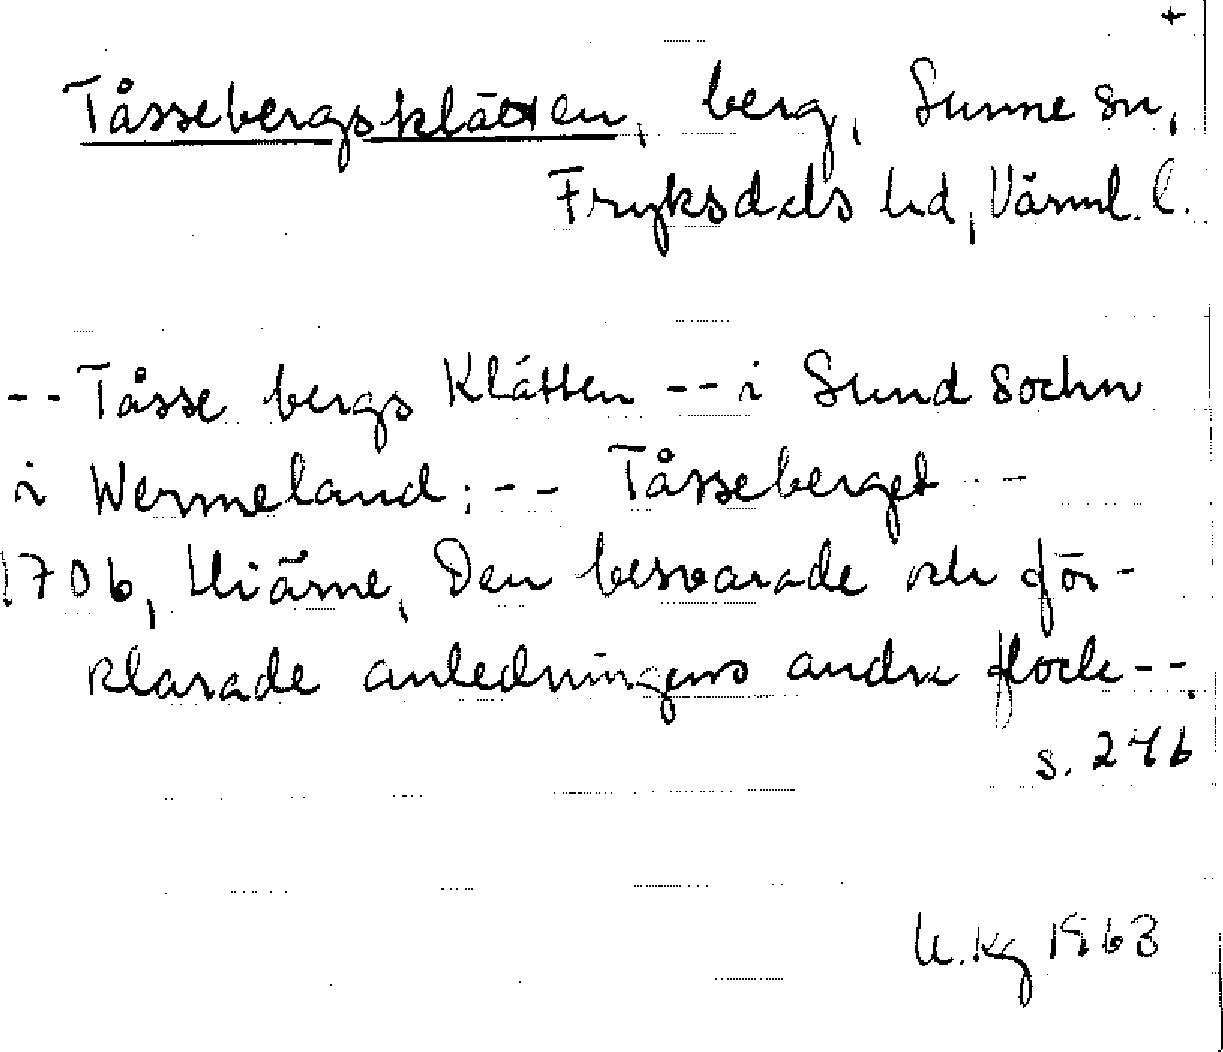 +
Tåssebergsklätten, berg, Sunne sn,
Fryksdals hd, Värml. l.
-- Tåsse bergs Klätten -- i Sund sochn
i Wermeland: -- Tåsseberget --
1706, Hiärne, Den besvarade och för-
klarade anledningens andra flock --.
s. 246
H. Kg 1963